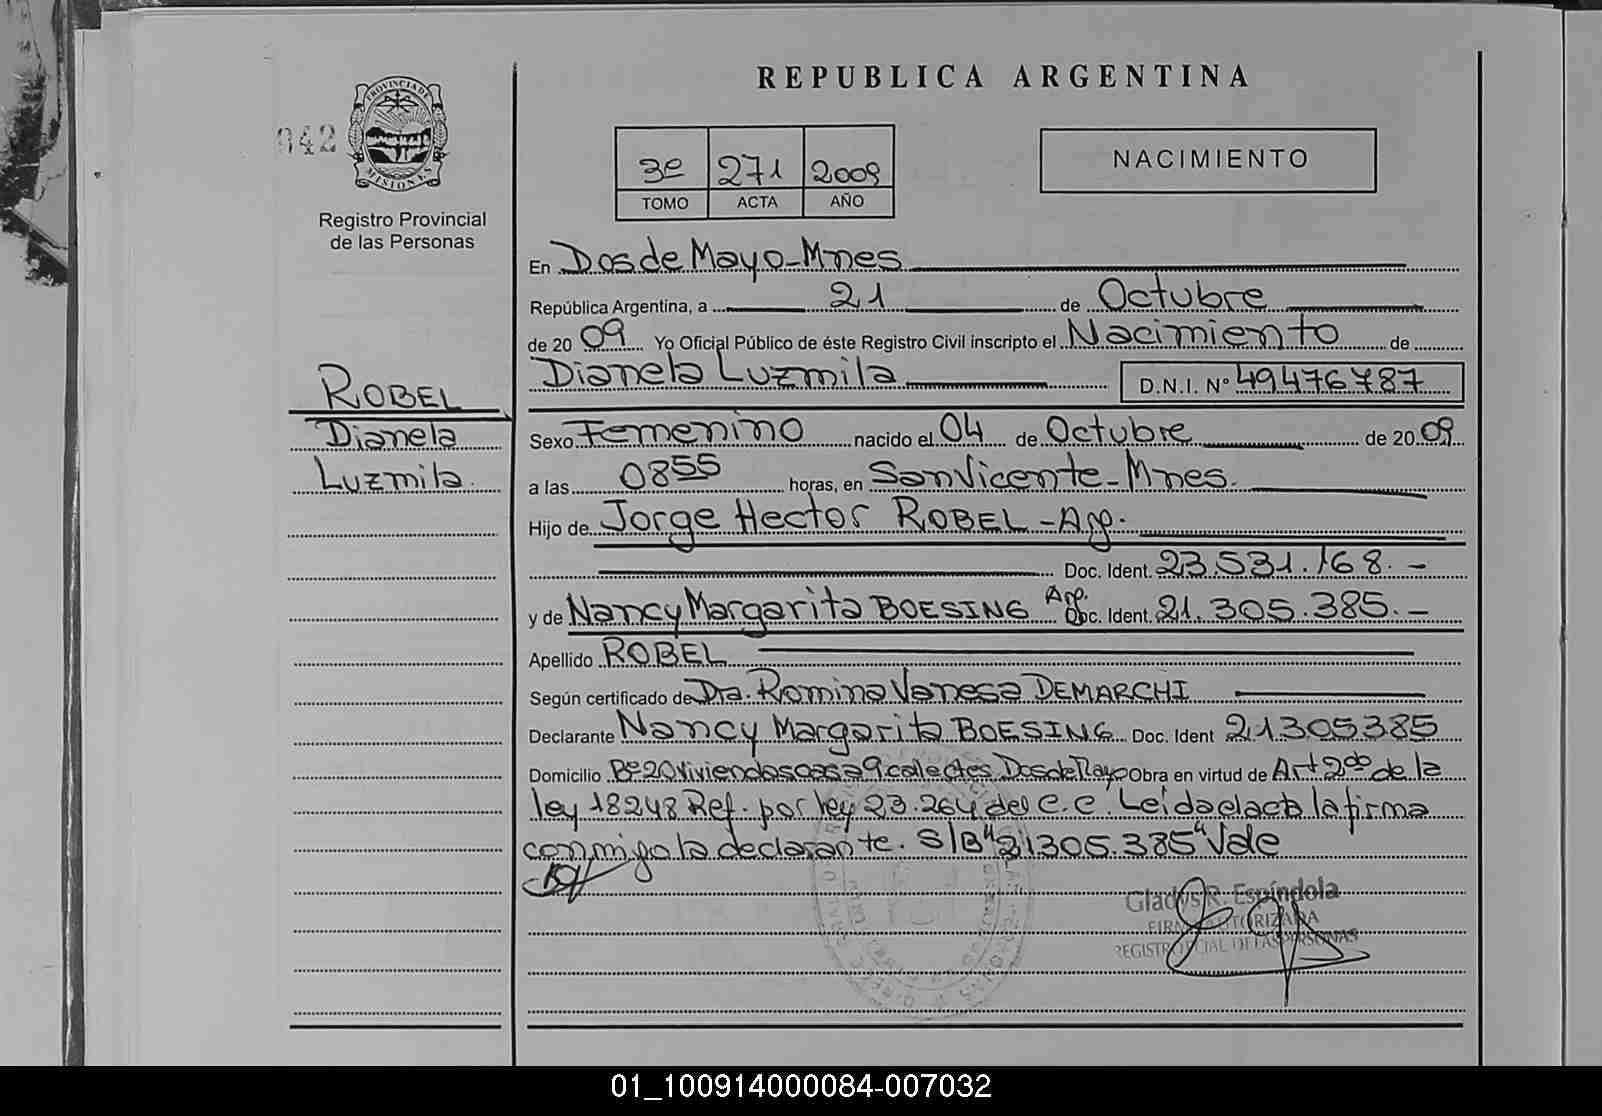 REPUBLICA ARGENTINA
042
PROVINCIA DE
MISIONES
Registro Provincial
de las Personas
3º 271 2009
TOMO ACTA AÑO
NACIMIENTO
En Dos de Mayo-Mnes
República Argentina, a 21 de Octubre
de 20 09 Yo Oficial Público de éste Registro Civil inscripto el Nacimiento de
Dianela Luzmila D.N.I. Nº 49476787
ROBEL
Dianela
Luzmila
Sexo Femenino nacido el 04 de Octubre de 20 09
a las 0855 horas, en San Vicente-Mnes.
Hijo de Jorge Hector ROBEL-Arg.
Doc. Ident. 23.531.168.-
y de Nancy Margarita BOESING Arg. Doc. Ident. 21.305.385.-
Apellido ROBEL
Según certificado de Dra. Romina Vanesa DEMARCHI
Declarante Nancy Margarita BOESING Doc. Ident 21305385
Domicilio Bº 20 viviendas casa 9 calle ctes. Dos de Mayo Obra en virtud de Art 2do de la
ley 18248 Ref. por ley 23.264 del C.C. Leida el acta la firma
conmigo la declarante. S/B "21305.385" Vale
Gladys R. Espíndola
FIRMA AUTORIZADA
REGISTRO PROVINCIAL DE LAS PERSONAS
01_100914000084-007032